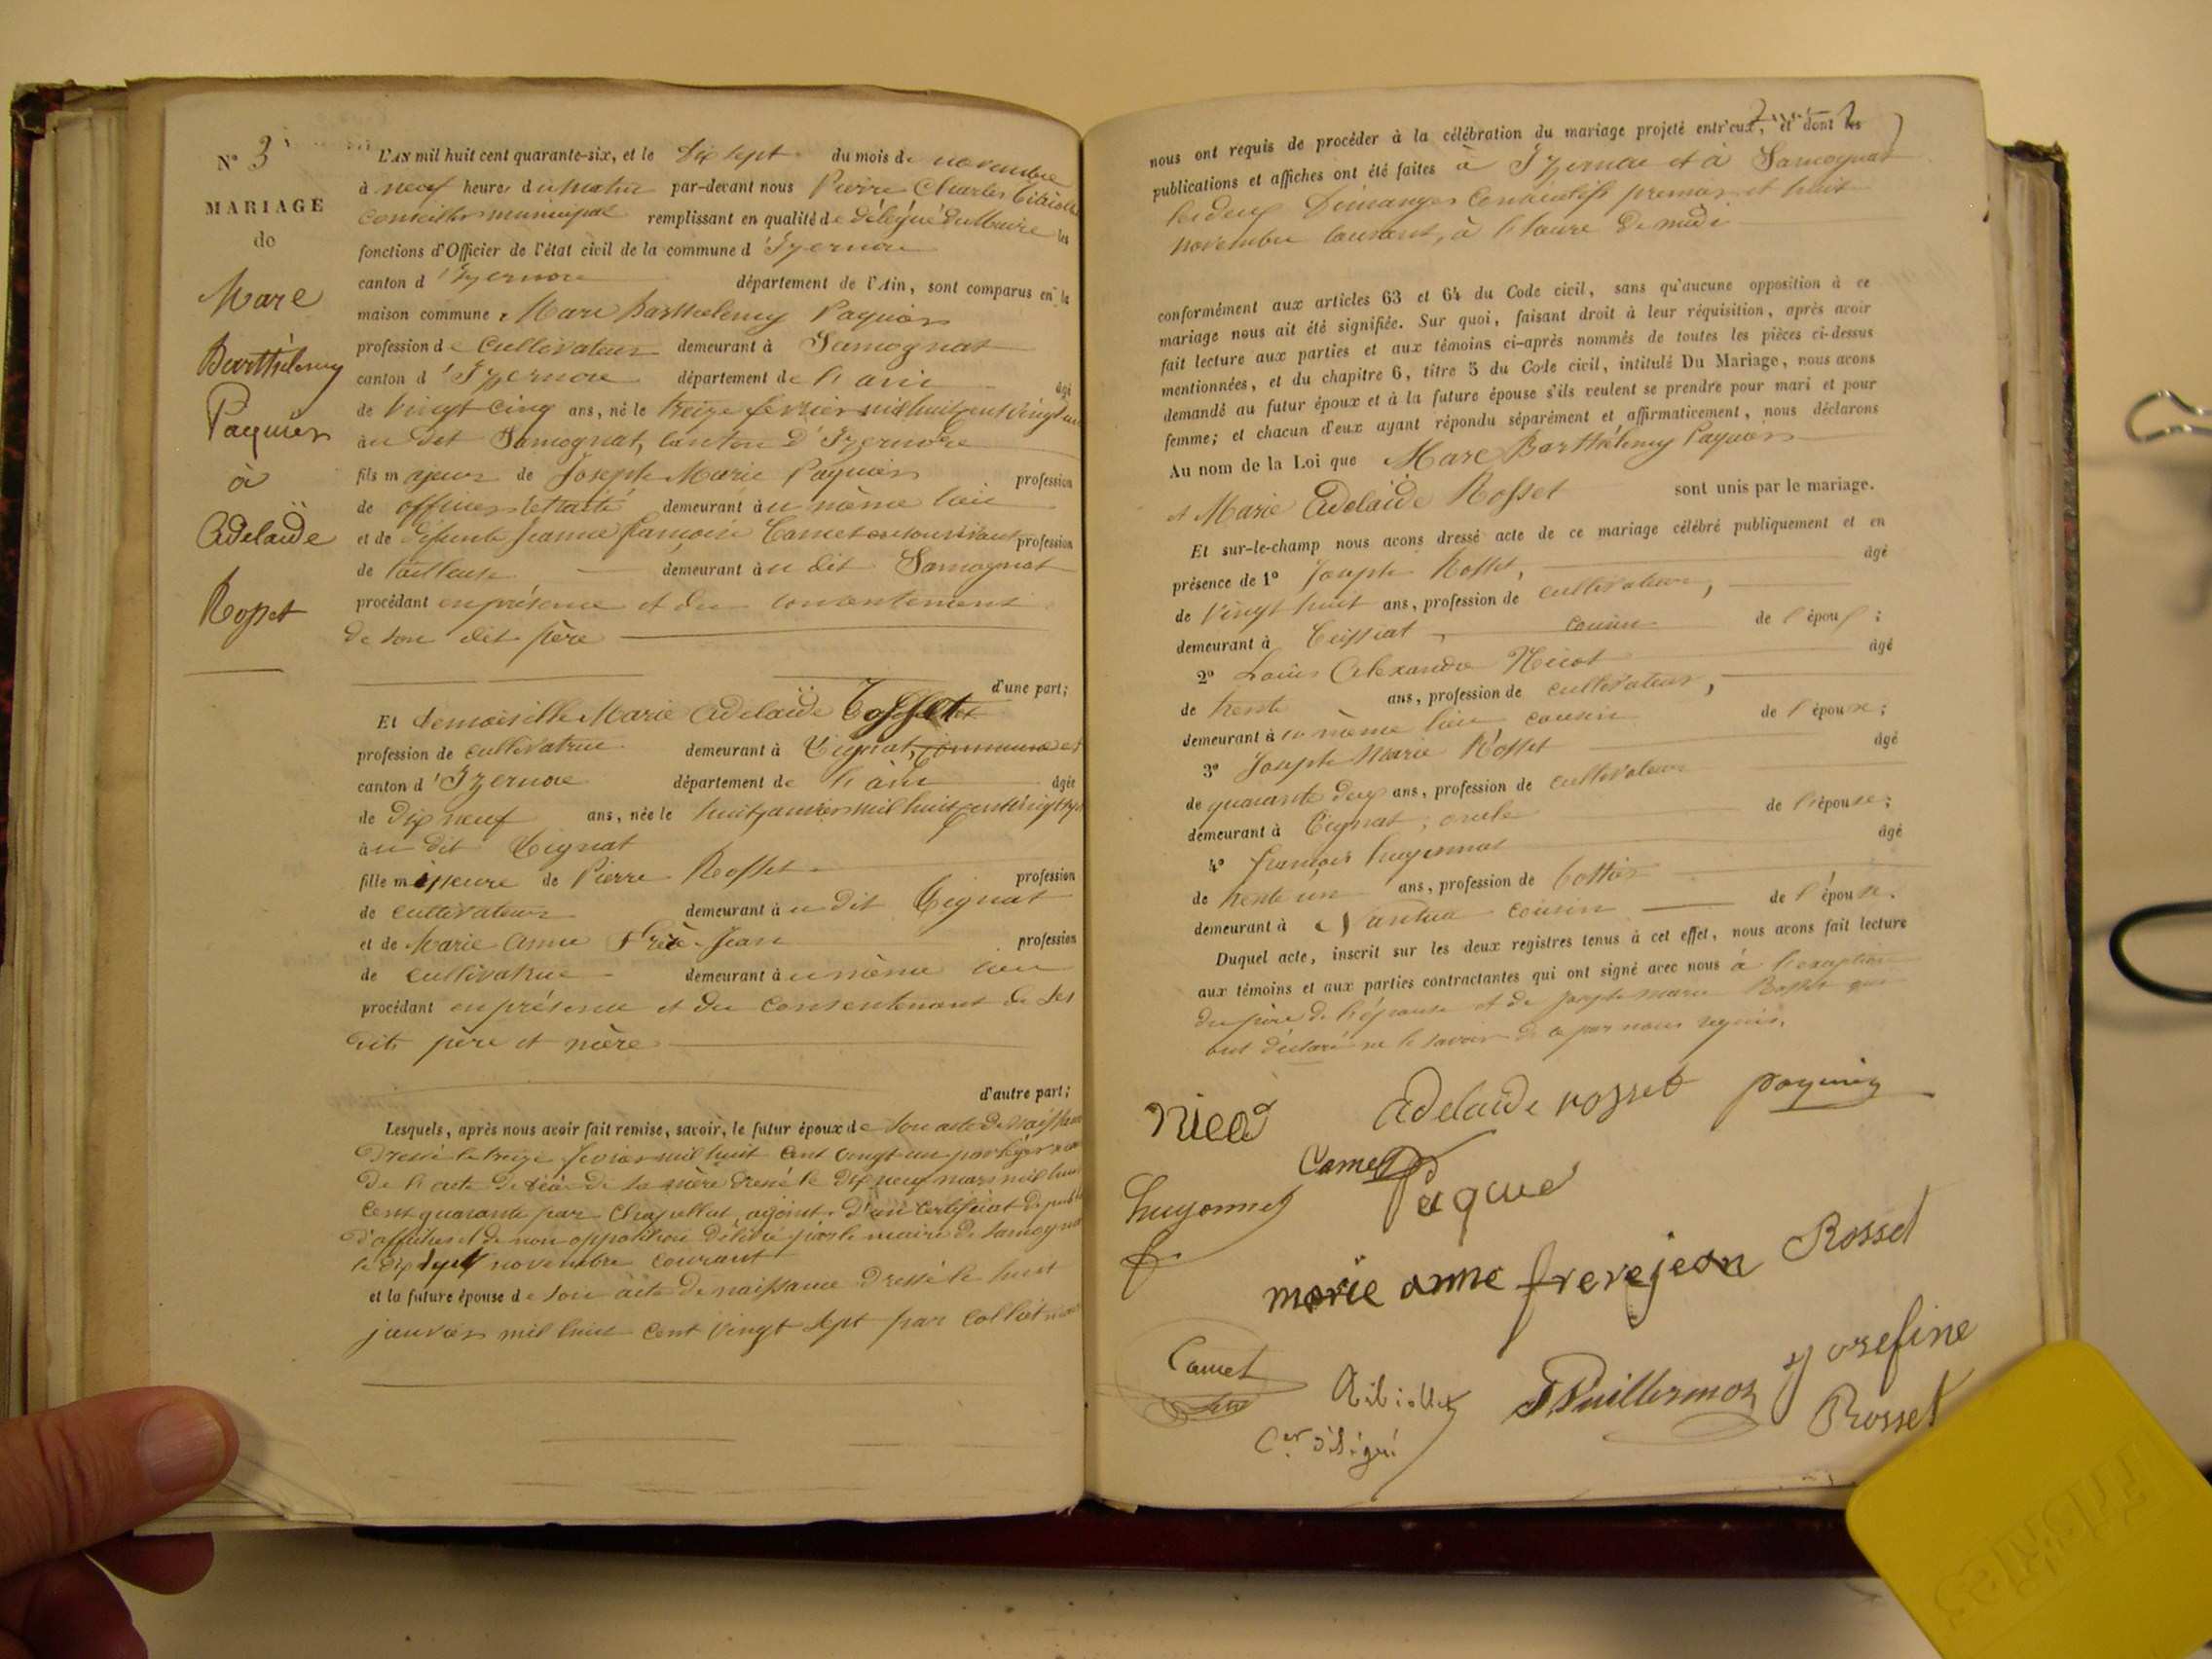 N° 3
MARIAGE
de
Marc
Barthélemy
Paquier
à
Adelaïde
Rosset
L'AN mil huit cent quarante-six, et le dix sept du mois de novembre
à neuf heures du matin par-devant nous Pierre Charles
Conseiller municipal remplissant en qualité de délégué du Maire les
fonctions d'Officier de l'état civil de la commune d'Izernore
canton d'Izernore département de l'Ain, sont comparus en la
maison commune, Marc Barthelemy Paquier
profession de cultivateur demeurant à Samognat
canton d'Izernore département de l'ain âgé
de vingt cinq ans, né le treize fevrier mil huit cent vingt un
au dit Samognat, canton d'Izernore
fils majeur de Joseph Marie Paquier profession
de officier retraité demeurant au même lieu
et de défunte Jeanne françoise Camet profession
de tailleuse demeurant au dit Samognat
procédant en présence et du consentement
de son dit père
d'une part;
Et demoiselle Marie Adelaïde Rosset
profession de cultivatrice demeurant à Tignat, commune
canton d'Izernore département de l'ain âgée
de dix neuf ans, née le huit janvier mil huit cent vingt sept
au dit Tignat
fille mineure de Pierre Rosset profession
de cultivateur demeurant au dit Tignat
et de Marie Anne Frère-Jean profession
de cultivatrice demeurant au même lieu
procédant en présence et du consentement de ses
dits père et mère
d'autre part;
Lesquels, après nous avoir fait remise, savoir, le futur époux de son acte de naissance
Dressé le treize fevrier mil huit cent vingt un par
De l'acte de décès de sa mère dressé le dix neuf mars mil huit
cent quarante par Chapellut adjoint. D'un certificat de
d'affiches et de non opposition délivré par le maire de Samognat
le dix sept novembre courant
et la future épouse de son acte de naissance dressé le huit
janvier mil huit cent vingt sept par Colliet
nous ont requis de procéder à la célébration du mariage projeté entr'eux, et dont les
publications et affiches ont été faites à Izernore et à Samognat
les deux Dimanges consécutifs premier et huit
novembre courant, à l'heure de midi
conformément aux articles 63 et 64 du Code civil, sans qu'aucune opposition à ce
mariage nous ait été signifiée. Sur quoi, faisant droit à leur réquisition, après avoir
fait lecture aux parties et aux témoins ci-après nommés de toutes les pièces ci-dessus
mentionnées, et du chapitre 6, titre 5 du Code civil, intitulé Du Mariage, nous avons
demandé au futur époux et à la future épouse s'ils veulent se prendre pour mari et pour
femme; et chacun d'eux ayant répondu séparément et affirmativement, nous déclarons
Au nom de la Loi que Marc Barthélemy Paquier
et Marie Adelaïde Rosset sont unis par le mariage.
Et sur-le-champ nous avons dressé acte de ce mariage célébré publiquement et en
présence de 1° Joseph Rosset, âgé
de vingt huit ans, profession de cultivateur,
demeurant à Ceissiat, cousin de l'époux;
2° Louis Alexandre Nicot âgé
de trente ans, profession de cultivateur,
demeurant à même lieu cousin de l'épouse;
3° Joseph Marie Rosset âgé
de quarante deux ans, profession de cultivateur
demeurant à Tignat, oncle de l'épouse;
4° françois huyonnet âgé
de trente un ans, profession de bottier
demeurant à Nantua cousin de l'épouse.
Duquel acte, inscrit sur les deux registres tenus à cet effet, nous avons fait lecture
aux témoins et aux parties contractantes qui ont signé avec nous à l'exception
du père de l'épouse et de joseph marie Rosset qui
ont déclaré ne le savoir de ce par nous requis.
Nicod Adelaïde rosset paquier
Camet
huyonnet Paque
marie anne frerejean Rosset
Camet
Josefine
Puillermoz
Rosset
Cer délégué